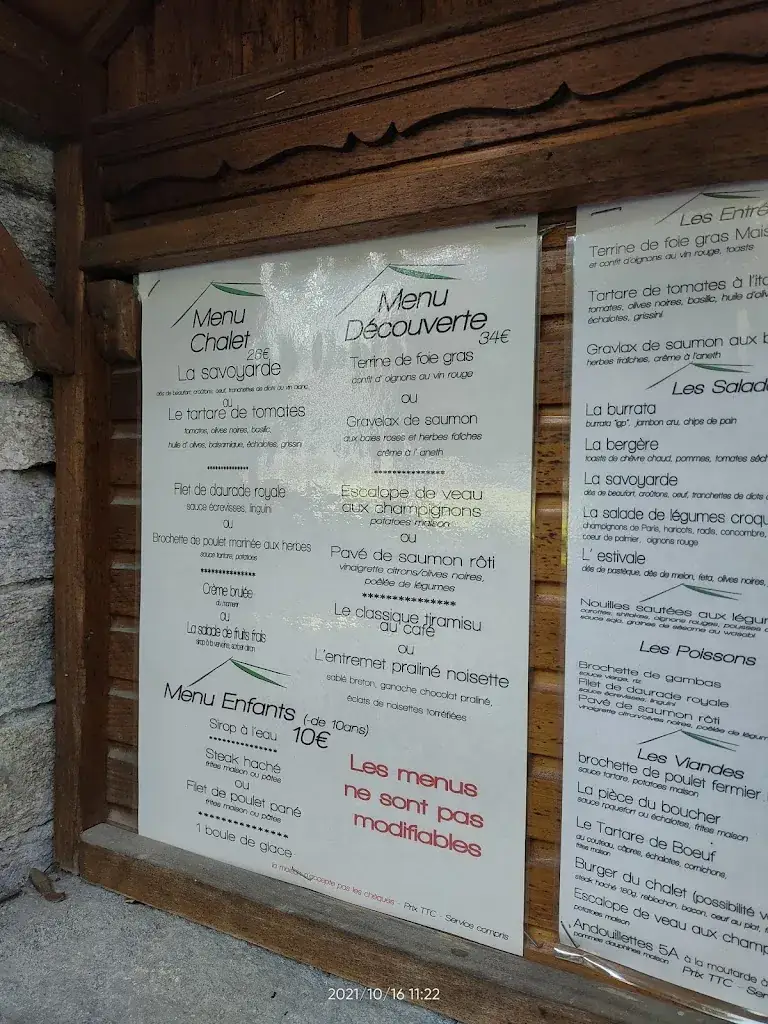 Menu
Chalet
28€
La savoyarde
dés de beaufort, croûtons, oeuf, tranchettes de diots au vin blanc
ou
Le tartare de tomates
tomates, olives noires, basilic,
huile d' olives, balsamique, échalotes, grissini
**************
Filet de daurade royale
sauce écrevisses, linguini
ou
Brochette de poulet marinée aux herbes
sauce tartare, potatoes
**************
Crème brulée
du moment
ou
La salade de fruits frais
sirop à la verveine, sorbet citron
Menu
Découverte
34€
Terrine de foie gras
confit d' oignons au vin rouge
ou
Gravelax de saumon
aux baies roses et herbes fraîches
crème à l' aneth
***************
Escalope de veau
aux champignons
potatoes maison
ou
Pavé de saumon rôti
vinaigrette citrons/olives noires,
poêlée de légumes
***************
Le classique tiramisu
au café
ou
L'entremet praliné noisette
sablé breton, ganache chocolat praliné,
éclats de noisettes torréfiées
Menu Enfants (-de 10ans)
10€
Sirop à l'eau
**************
Steak haché
frites maison ou pâtes
ou
Filet de poulet pané
frites maison ou pâtes
**************
1 boule de glace
Les menus
ne sont pas
modifiables
la maison n'accepte pas les chèques - Prix TTC - Service compris
Les Entré
Terrine de foie gras Mais
et confit d'oignons au vin rouge, toasts
Tartare de tomates à l'ita
tomates, olives noires, basilic, huile d'oliv
échalotes, grissini
Gravlax de saumon aux b
herbes fraîches, crème à l'aneth
Les Salad
La burrata
burrata "igp", jambon cru, chips de pain
La bergère
toasts de chèvre chaud, pommes, tomates séch
La savoyarde
dés de beaufort, croûtons, oeuf, tranchettes de diots
La salade de légumes croqu
champignons de Paris, haricots, radis, concombre,
coeur de palmier, oignons rouge
L' estivale
dés de pastèque, dés de melon, feta, olives noires,
Nouilles sautées aux légum
carottes, shiitakes, oignons rouges, pousses
sauce soja, graines de sésame au wasabi
Les Poissons
Brochette de gambas
sauce vierge, riz
Filet de daurade royale
sauce écrevisses, linguini
Pavé de saumon rôti
vinaigrette citron/olives noires, poêlée de légum
Les Viandes
brochette de poulet fermier
sauce tartare, potatoes maison
La pièce du boucher
sauce roquefort ou échalotes, frites maison
Le Tartare de Boeuf
au couteau, câpres, échalotes, cornichons,
frites maison
Burger du chalet (possibilité v
steak haché 180g, reblochon, bacon, oeuf au plat,
Escalope de veau aux champ
potatoes maison
Andouillettes 5A à la moutarde à
pommes dauphines maison
Prix TTC - Se
2021/10/16 11:22